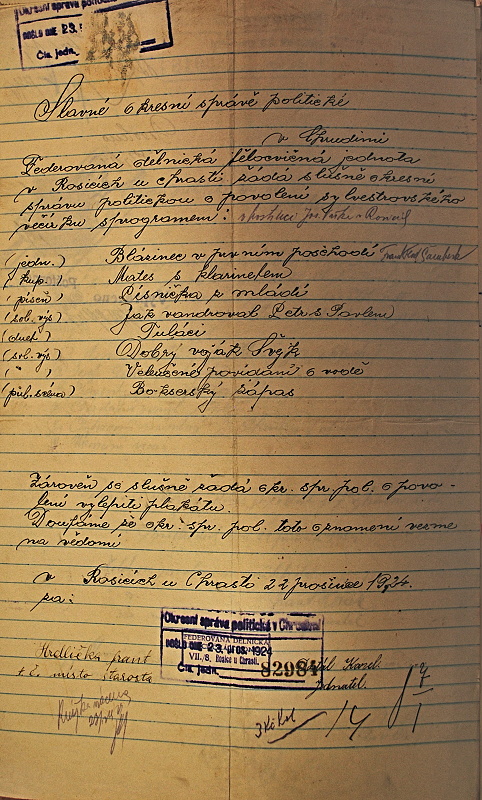 Okresní správa politická
DOŠLO DNE 23.
Čís. jedn.
Slavné okresní správě politické
v Chrudimi
Federovaná dělnická tělocvičná jednota
v Rosicích u chrasti žádá slušně okresní
správu politickou o povolení sylvestrovského
večírku sprogramem:
(jedn.) Blázinec v prvním poschodí
(kup.) Mates s klarinetem
(píseň) Písnička z mládí
(sol. výs) Jak vandroval Petr s Pavlem
(duet) Tuláci
(sol. výs) Dobrý voják Švejk
( " ) Vekušené povídání o vodě
(púl. scéna) Bokserský zápas
Zároveň se slušně žádá okr. spr. pol. o povo-
lení vylepiti plakátu.
Doufáme že okr. spr. pol. toto oznamení verme
na vědomí
v Rosicích u Chrasti 22 prosince 1924.
za:
Okresní správa politická v Chrudimi
DOŠLO DNE 23. PROS. 1924
FEDEROVANÁ DĚLNICKÁ
VII./8. Rosice u Chrasti.
Čís. jedn. 82984
Hrdlička frant
t. č. místo starosta
Karel
jednatel